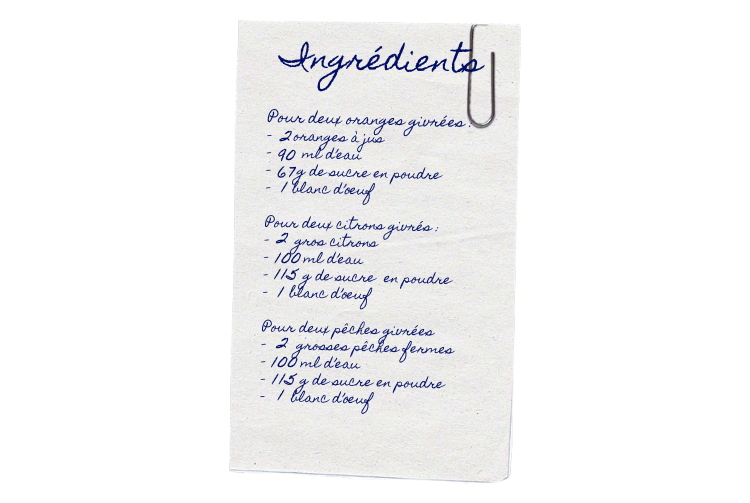 Ingrédients
Pour deux oranges givrées :
- 2 oranges à jus
- 90 ml d'eau
- 67g de sucre en poudre
- 1 blanc d'œuf
Pour deux citrons givrés :
- 2 gros citrons
- 100 ml d'eau
- 115 g de sucre en poudre
- 1 blanc d'œuf
Pour deux pêches givrées
- 2 grosses pêches fermes
- 100 ml d'eau
- 115 g de sucre en poudre
- 1 blanc d'œuf